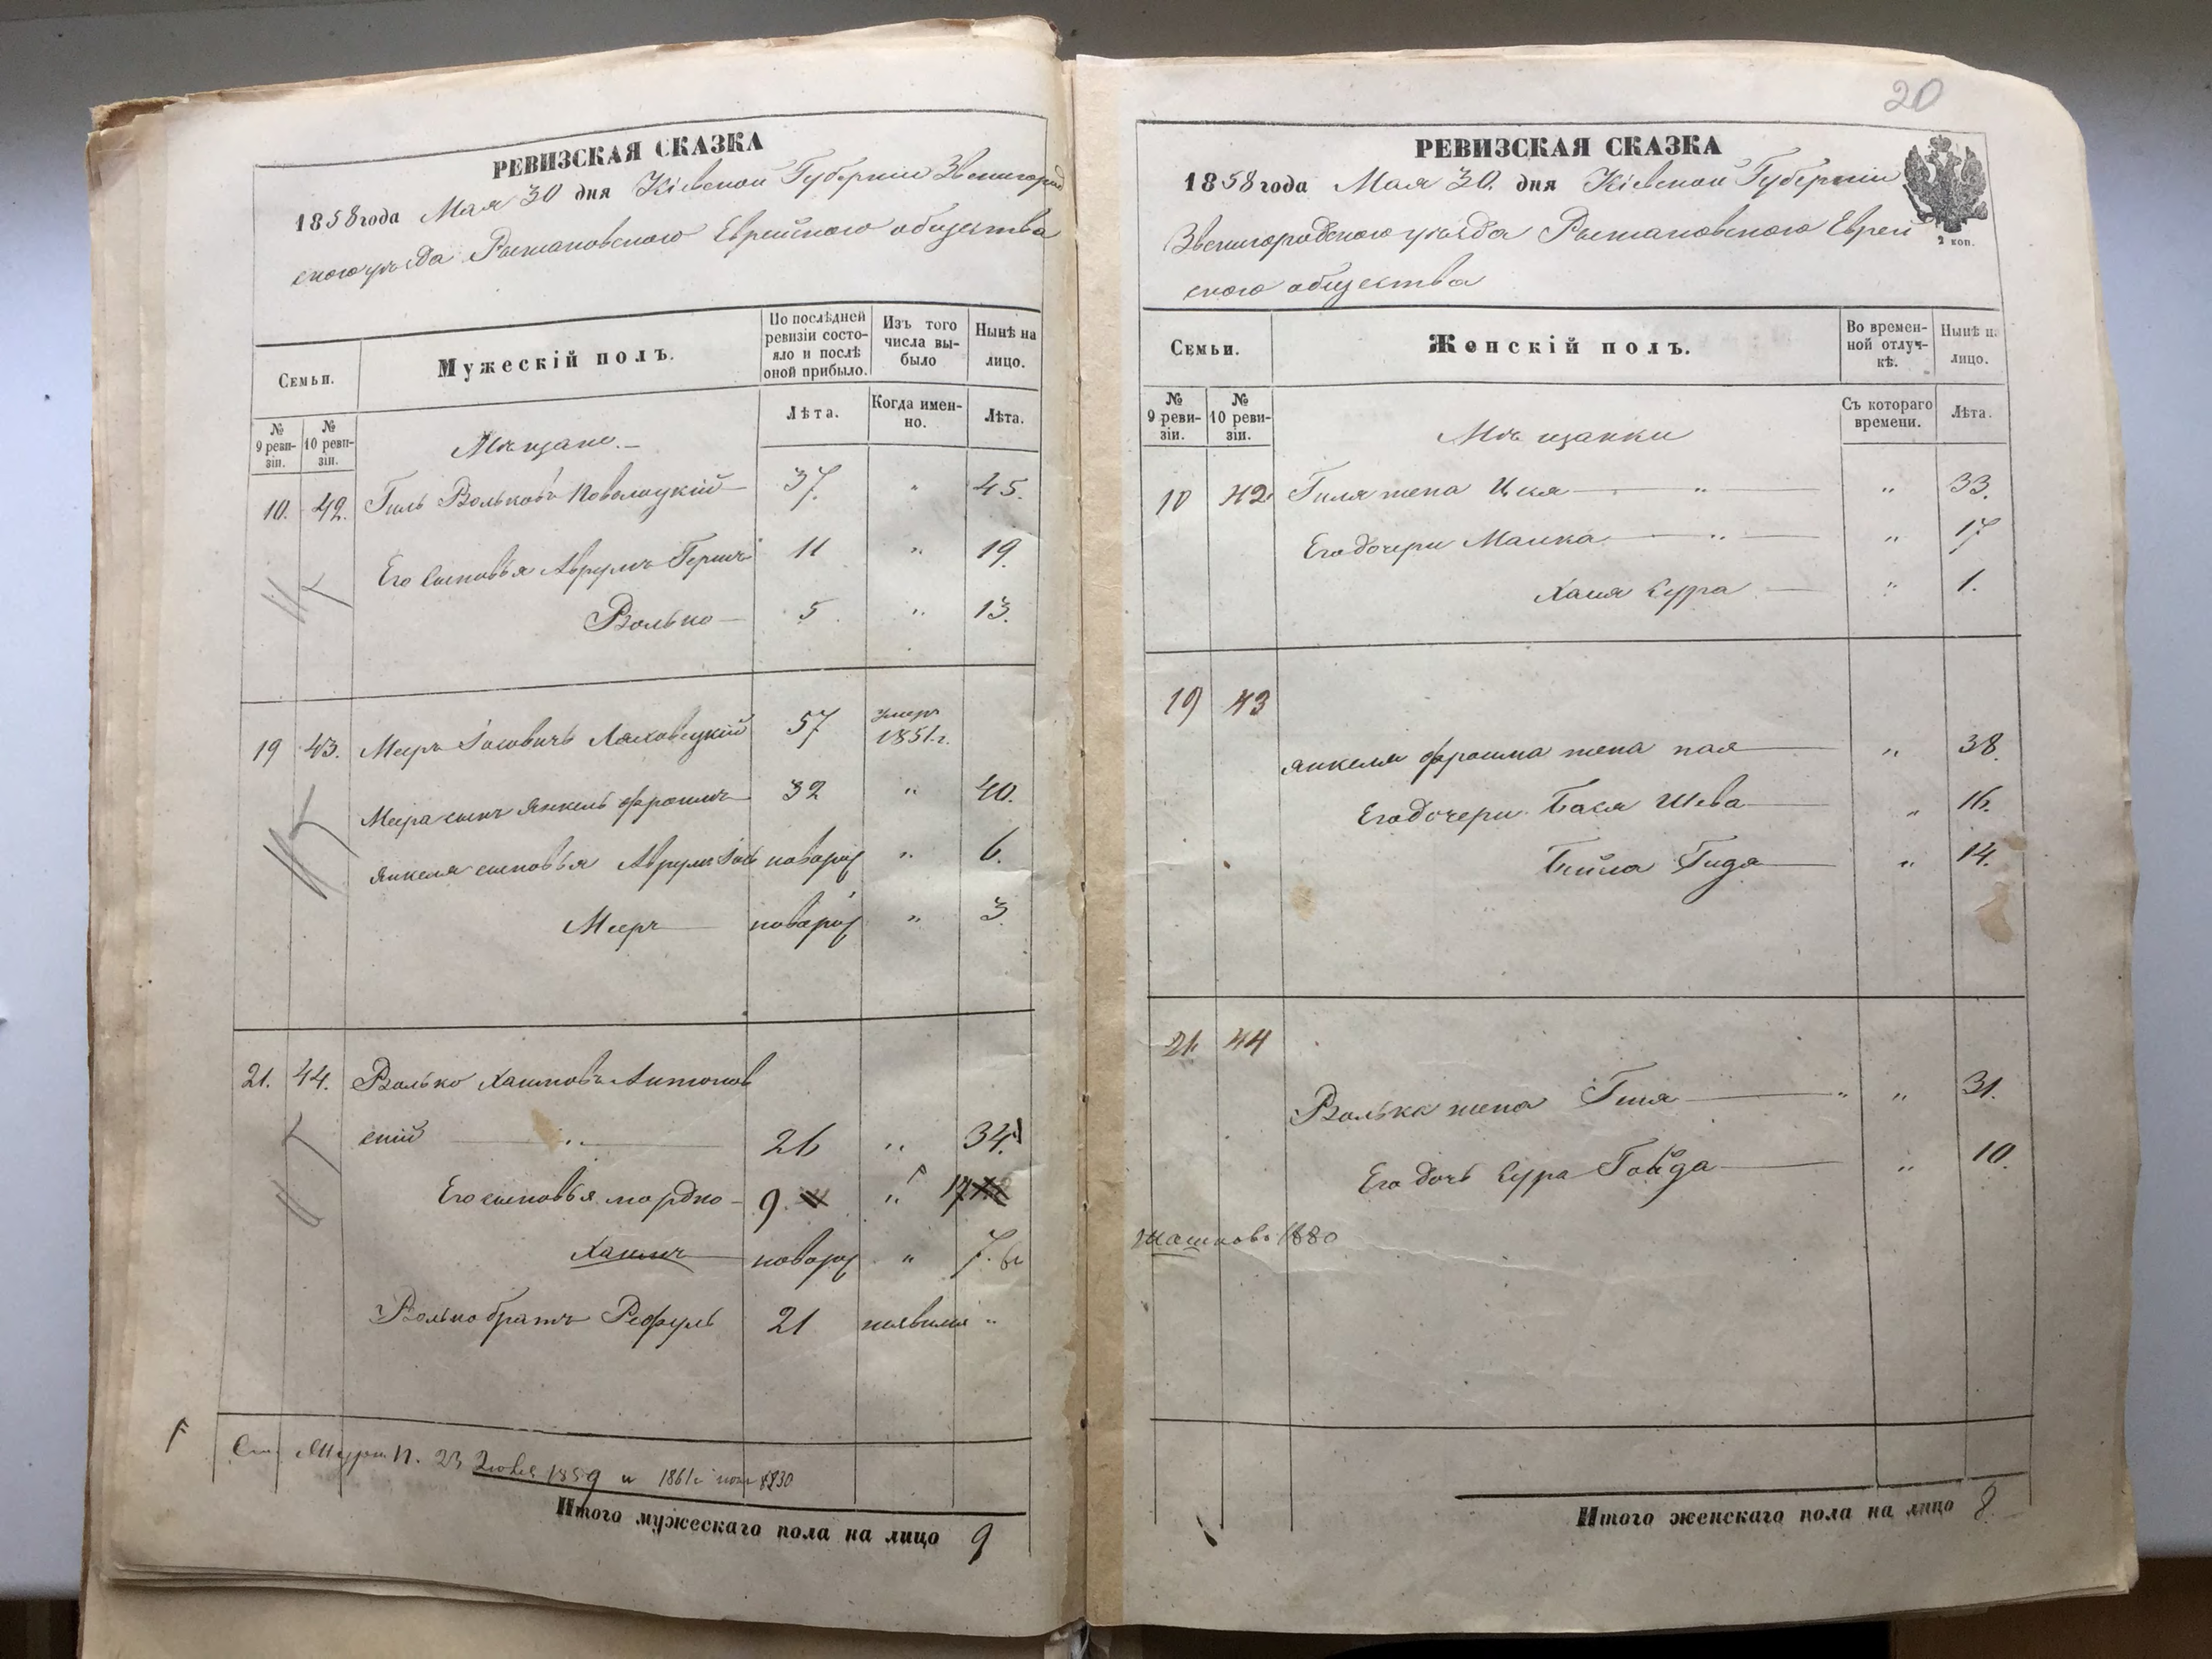 РЕВИЗСКАЯ СКАЗКА
1858 года Мая 30 дня Кіевской Губерніи Звенигород
ского уѣзда Рыжановского Еврейского общества
Семьи.
Мужескій полъ.
По послѣдней ревизіи состояло и послѣ оной прибыло.
Изъ того числа выбыло
Нынѣ на лицо.
№ 9 ревизіи.
№ 10 ревизіи.
Лѣта.
Когда именно.
Лѣта.
Мѣщане.
10. 42. Гиль Вольковъ Поволоцкій 37 " 45.
Его сыновья Аврумъ Гершъ 11 " 19.
Волько 5 " 13.
19 43. Мееръ Іосовичъ Ляховецкій 57 умеръ 1851 г.
Меера сынъ Янкель Фроимъ 32 " 40.
Янкеля сыновья Аврумъ Іос новорож " 6.
Мееръ новорож " 3
21. 44. Волько Хаимовъ Антонов
скій " 26 " 34.
Его сыновья Мордко 9. " 17
Хаимъ новорож " 7.
Волько братъ Рефуль 21 "
23 1859 и 1861 г.
Итого мужескаго пола на лицо 9
20
РЕВИЗСКАЯ СКАЗКА
1858 года Мая 30. дня Кіевской Губерніи
Звенигородского уѣзда Рыжановского Еврей
ского общества
2 коп.
Семьи.
Женскій полъ.
Во временной отлучкѣ.
Нынѣ на лицо.
№ 9 ревизіи.
№ 10 ревизіи.
Съ котораго времени.
Лѣта.
Мѣщанки
10 42. Гиля жена " " 33.
Его дочери Малка " " 17
Хая Сура " 1.
19 43
Янкеля Фроима жена " 38.
Его дочери Бася Шева " 16.
Бейла Гида " 14.
21. 44
Волька жена " " 31.
Его дочь Сура " 10.
1880
Итого женскаго пола на лицо 8.